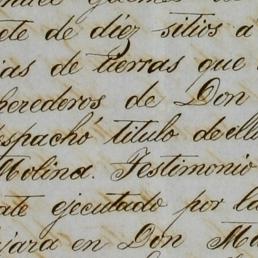 ete de diez sitios a
ias de tierras que
herederos de Don
espachó titulo de ella
Molina. Testimonio
ate ejecutado por la
jara en Don Ma